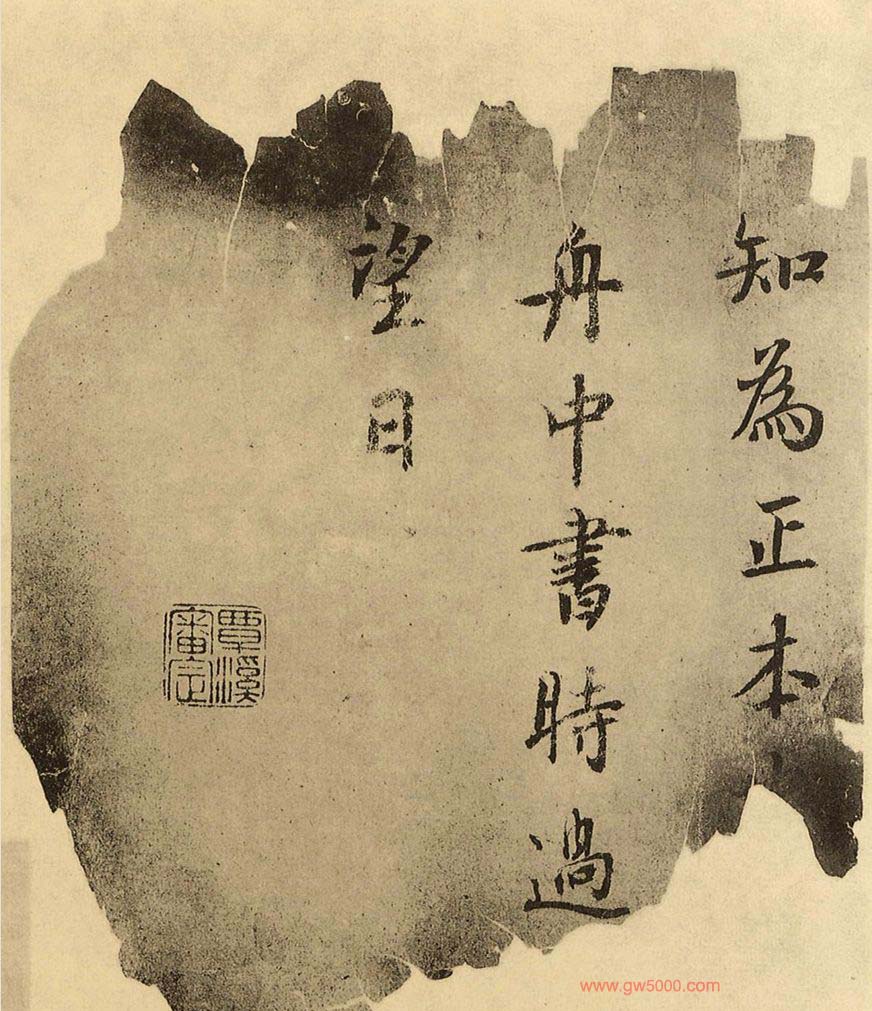 知為正本
舟中書時過
望日
覃溪審定
www.gw5000.com